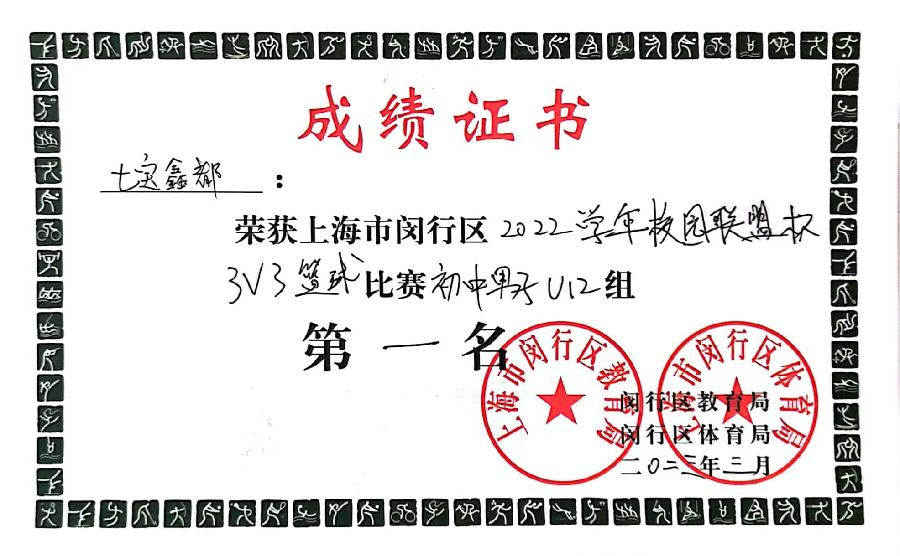 成绩证书
七宝鑫都：
荣获上海市闵行区2022学年校园联盟杯
3V3篮球比赛初中男子U12组
第一名
上海市闵行区教育局
上海市闵行区体育局
闵行区教育局
闵行区体育局
二〇二三年三月